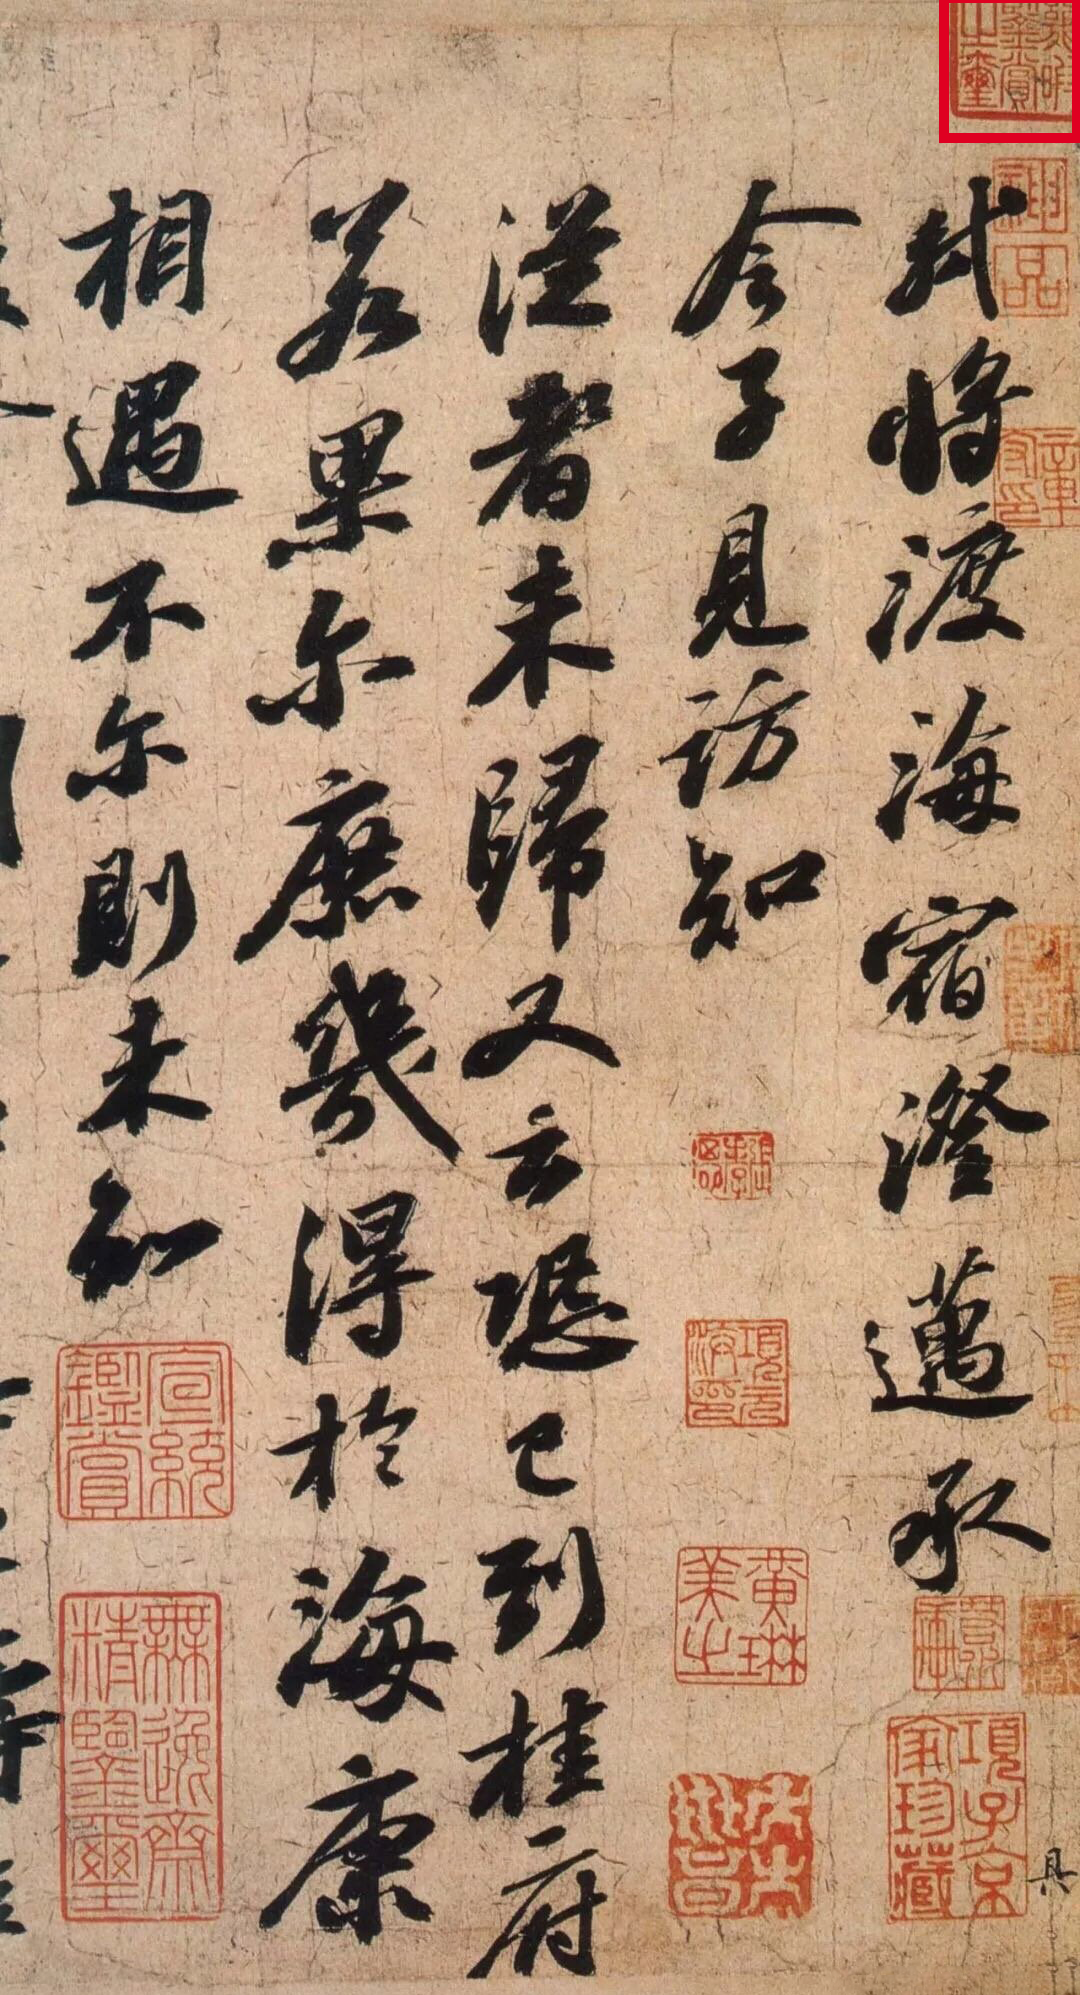 軾將渡海宿澄邁承
令子見訪知
從者未歸又云恐已到桂府
若果尔庶幾得於海康
相遇不尔則未知
神品
項元汴印
黃琳美之
項子京家珍藏
宣統鑑賞
無逸齋精鑒璽
具